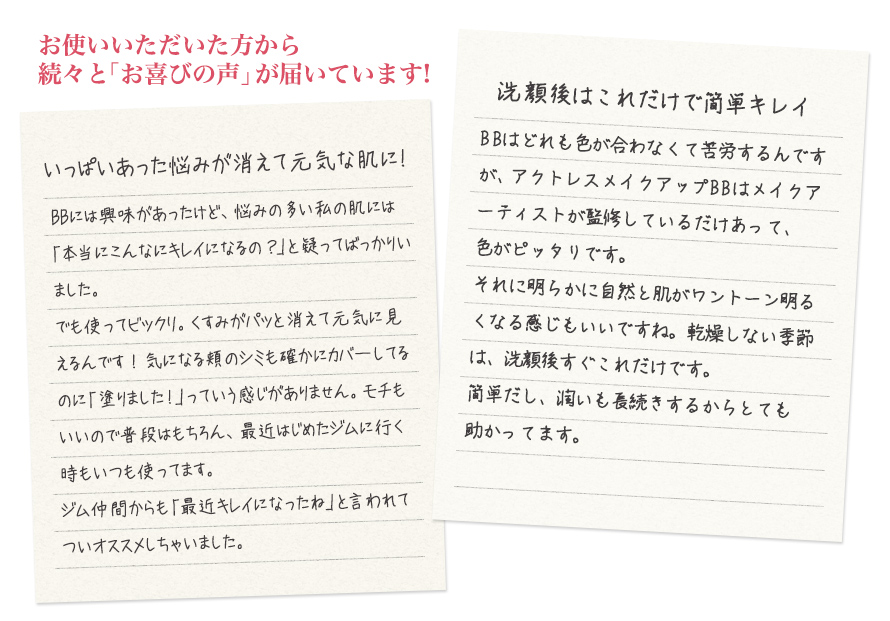 お使いいただいた方から
続々と「お喜びの声」が届いています!
いっぱいあった悩みが消えて元気な肌に!
BBには興味があったけど、悩みの多い私の肌には
「本当にこんなにキレイになるの?」と疑ってばっかりい
ました。
でも使ってビックリ。くすみがパッと消えて元気に見
えるんです! 気になる頬のシミも確かにカバーしてる
のに「塗りました!」っていう感じがありません。モチも
いいので普段はもちろん、最近はじめたジムに行く
時もいつも使ってます。
ジム仲間からも「最近キレイになったね」と言われて
ついオススメしちゃいました。
洗顔後はこれだけで簡単キレイ
BBはどれも色が合わなくて苦労するんです
が、アクトレスメイクアップBBはメイクア
ーティストが監修しているだけあって、
色がピッタリです。
それに明らかに自然と肌がワントーン明る
くなる感じもいいですね。乾燥しない季節
は、洗顔後すぐこれだけです。
簡単だし、潤いも長続きするからとても
助かってます。